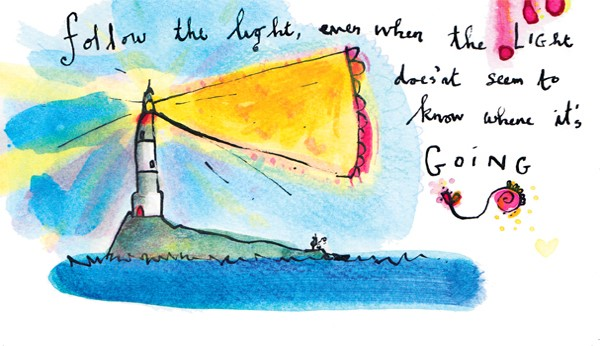 follow the light, even when the LIGHt
does'nt seem to
know where it's
GOING